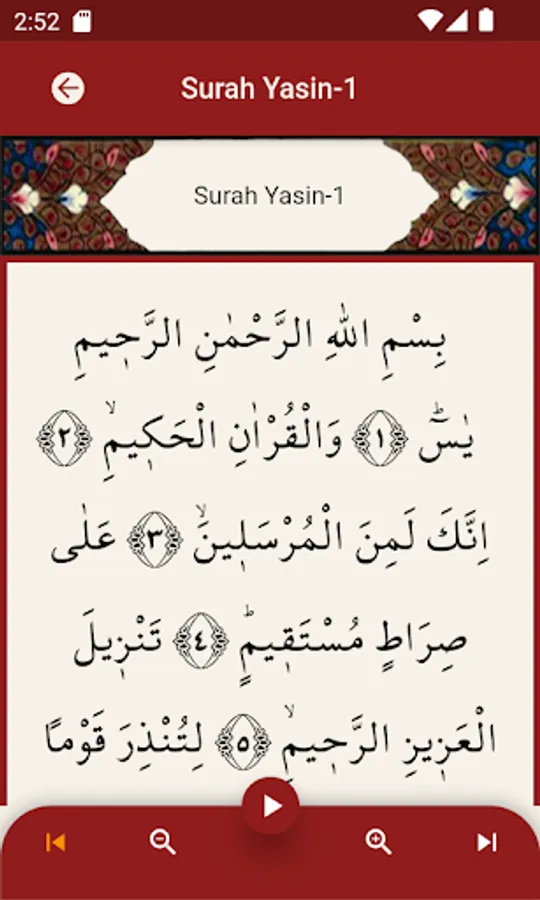 2:52
Surah Yasin-1
Surah Yasin-1
بِسْمِ اللّٰهِ الرَّحْمٰنِ الرَّح۪يمِ
يٰسٓۜ ﴿١﴾ وَالْقُرْاٰنِ الْحَك۪يمِۙ ﴿٢﴾
اِنَّكَ لَمِنَ الْمُرْسَل۪ينَۙ ﴿٣﴾ عَلٰى
صِرَاطٍ مُسْتَق۪يمٍۜ ﴿٤﴾ تَنْز۪يلَ
الْعَز۪يزِ الرَّح۪يمِۙ ﴿٥﴾ لِتُنْذِرَ قَوْمًا